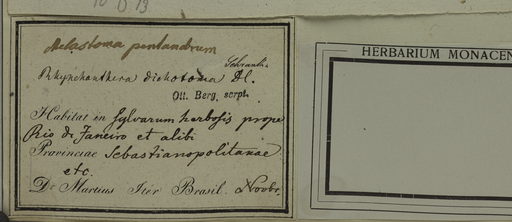 Melastoma pentandrum
Schrank.
Rhynchanthera dichotoma DC.
Ott. Berg. scrpt.
HERBARIUM MONACEN
Habitat in Sylvarum herbosis prope
Rio de Janeiro et alibi
Provinciae Sebastianopolitanae
etc.
Dr Martius Iter Brasil. Novbr.